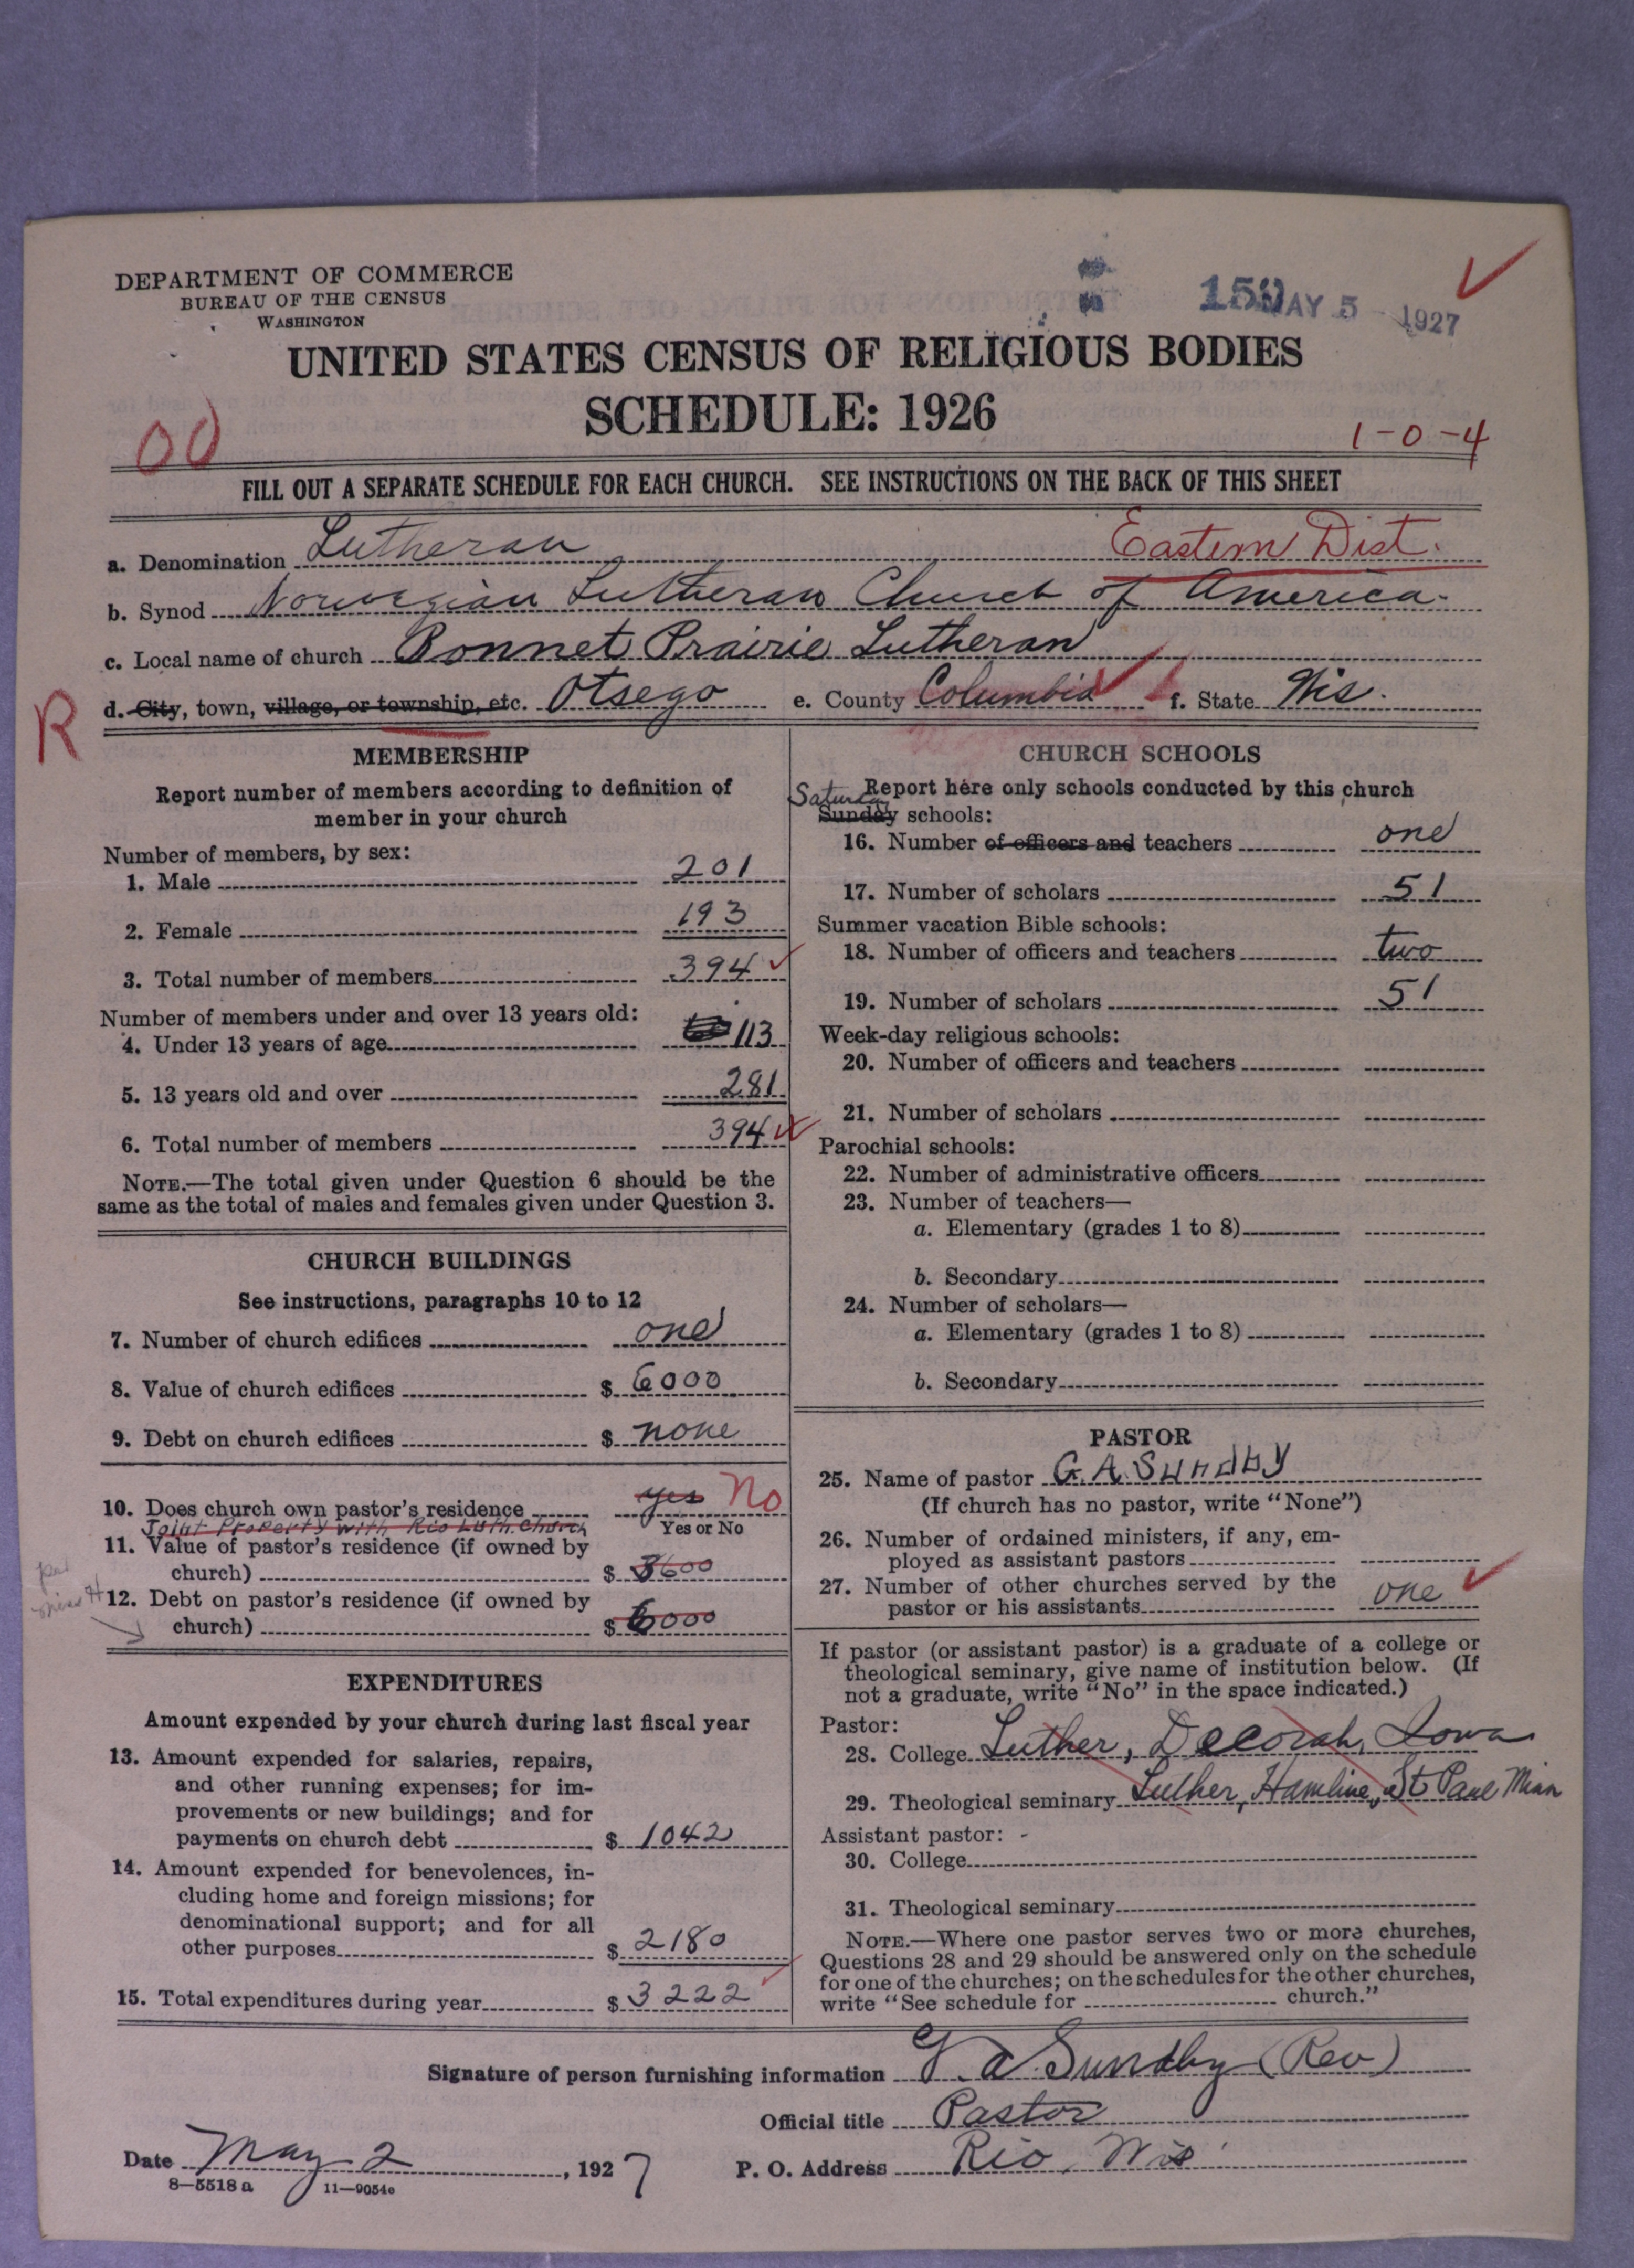 DEPARTMENT OF COMMERCE
BUREAU OF THE CENSUS
WASHINGTON
150 MAY 5 1927
UNITED STATES CENSUS OF RELIGIOUS BODIES
SCHEDULE: 1926
00
1-0-4
FILL OUT A SEPARATE SCHEDULE FOR EACH CHURCH. SEE INSTRUCTIONS ON THE BACK OF THIS SHEET
a. Denomination Lutheran Eastern Dist.
b. Synod Norwegian Lutheran Church of America
c. Local name of church Bonnet Prairie Lutheran
R
d. City, town, village, or township, etc. Otsego e. County Columbia f. State Wis.
MEMBERSHIP
Report number of members according to definition of
member in your church
Number of members, by sex:
1. Male 201
2. Female 193
3. Total number of members 394
Number of members under and over 13 years old:
4. Under 13 years of age 113
5. 13 years old and over 281
6. Total number of members 394
NOTE.—The total given under Question 6 should be the
same as the total of males and females given under Question 3.
CHURCH BUILDINGS
See instructions, paragraphs 10 to 12
7. Number of church edifices one
8. Value of church edifices $ 6000
9. Debt on church edifices $ none
10. Does church own pastor's residence yes No
Yes or No
Joint Property with Rio Luth. Church
11. Value of pastor's residence (if owned by
church) $ 3600
12. Debt on pastor's residence (if owned by
church) $ 6000
EXPENDITURES
Amount expended by your church during last fiscal year
13. Amount expended for salaries, repairs,
and other running expenses; for im-
provements or new buildings; and for
payments on church debt $ 1042
14. Amount expended for benevolences, in-
cluding home and foreign missions; for
denominational support; and for all
other purposes $ 2180
15. Total expenditures during year $ 3222
CHURCH SCHOOLS
Report here only schools conducted by this church
Saturday
Sunday schools:
16. Number of officers and teachers one
17. Number of scholars 51
Summer vacation Bible schools:
18. Number of officers and teachers two
19. Number of scholars 51
Week-day religious schools:
20. Number of officers and teachers
21. Number of scholars
Parochial schools:
22. Number of administrative officers
23. Number of teachers—
a. Elementary (grades 1 to 8)
b. Secondary
24. Number of scholars—
a. Elementary (grades 1 to 8)
b. Secondary
PASTOR
25. Name of pastor G. A. Sundby
(If church has no pastor, write "None")
26. Number of ordained ministers, if any, em-
ployed as assistant pastors
27. Number of other churches served by the
pastor or his assistants one
If pastor (or assistant pastor) is a graduate of a college or
theological seminary, give name of institution below. (If
not a graduate, write "No" in the space indicated.)
Pastor:
28. College Luther, Decorah, Iowa
29. Theological seminary Luther, Hamline, St Paul Minn
Assistant pastor: -
30. College
31. Theological seminary
NOTE.—Where one pastor serves two or more churches,
Questions 28 and 29 should be answered only on the schedule
for one of the churches; on the schedules for the other churches,
write "See schedule for church."
Signature of person furnishing information G. A. Sundby (Rev)
Official title Pastor
Date May 2, 1927 P. O. Address Rio, Wis
8—5518 a 11—9054e